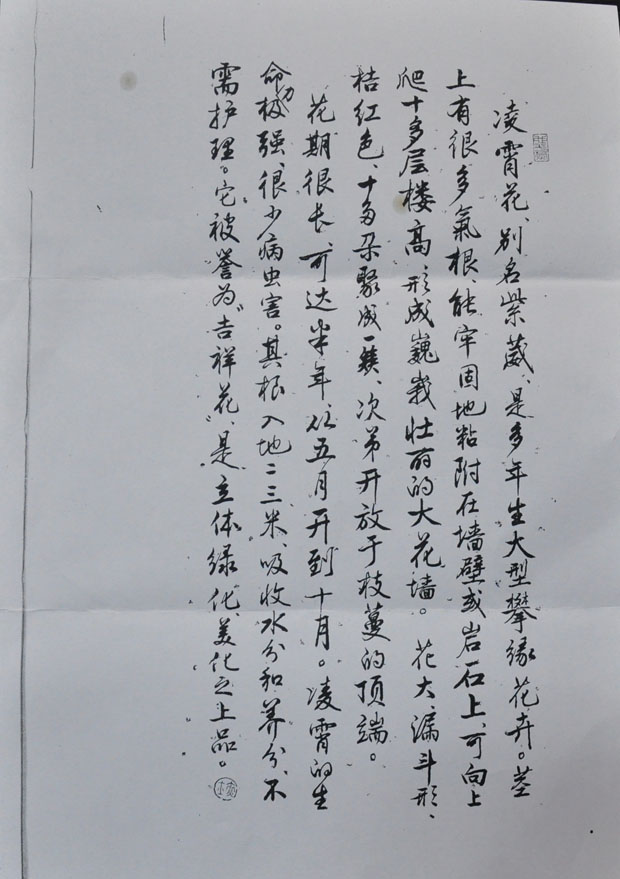 凌霄花、别名紫葳、是多年生大型攀缘花卉。茎
上有很多氣根、能牢固地粘附在墙壁或岩石上、可向上
爬十多层楼高、形成巍峩壮丽的大花墙。花大、漏斗形、
桔红色、十多朵聚成一簇、次第开放于枝蔓的顶端。
花期很长、可达半年、从五月开到十月。凌霄的生
命力极强、很少病虫害。其根入地二三米、吸收水分和养分、不
需护理。它被誉为“吉祥花”、是立体绿化、美化之上品。